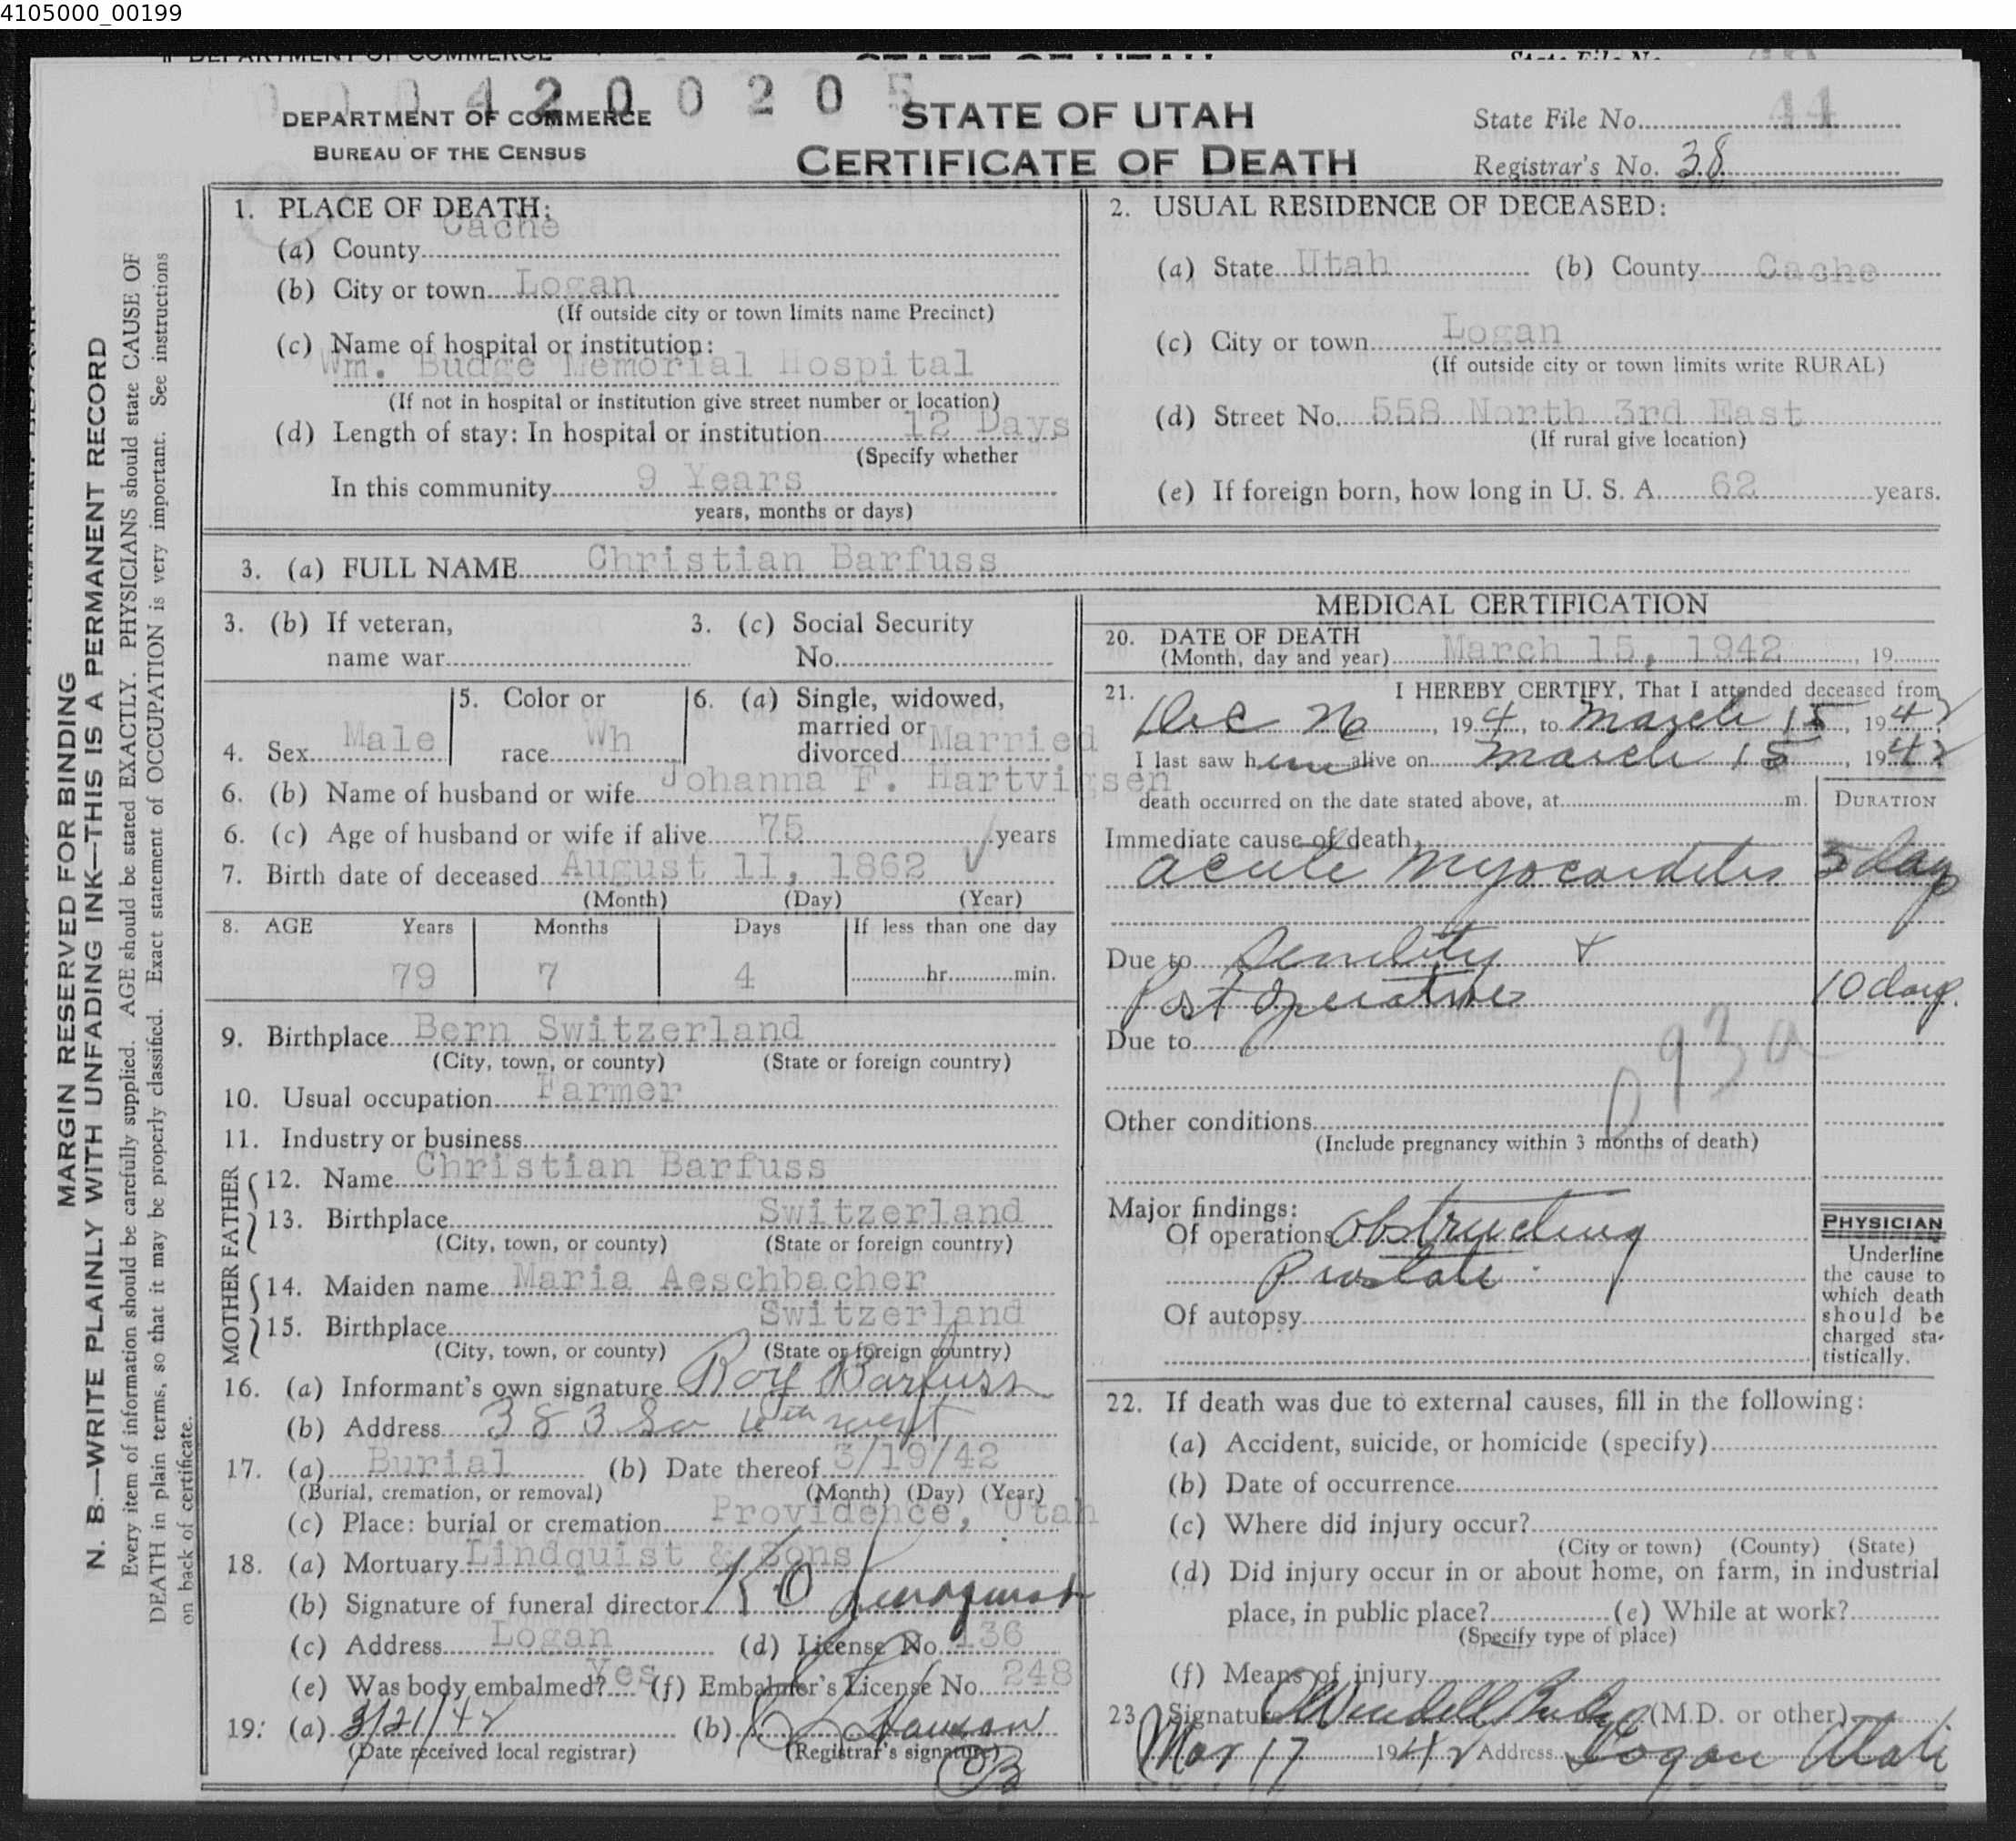 4105000_00199
0004200205
DEPARTMENT OF COMMERCE
BUREAU OF THE CENSUS
STATE OF UTAH
CERTIFICATE OF DEATH
State File No. 44
Registrar's No. 38
MARGIN RESERVED FOR BINDING
N. B.—WRITE PLAINLY WITH UNFADING INK—THIS IS A PERMANENT RECORD
Every item of information should be carefully supplied. AGE should be stated EXACTLY. PHYSICIANS should state CAUSE OF
DEATH in plain terms, so that it may be properly classified. Exact statement of OCCUPATION is very important. See instructions
on back of certificate.
1. PLACE OF DEATH:
(a) County Cache
(b) City or town Logan
(If outside city or town limits name Precinct)
(c) Name of hospital or institution:
Wm. Budge Memorial Hospital
(If not in hospital or institution give street number or location)
(d) Length of stay: In hospital or institution 12 Days
(Specify whether
In this community 9 Years
years, months or days)
2. USUAL RESIDENCE OF DECEASED:
(a) State Utah (b) County Cache
(c) City or town Logan
(If outside city or town limits write RURAL)
(d) Street No. 558 North 3rd East
(If rural give location)
(e) If foreign born, how long in U. S. A. 62 years.
3. (a) FULL NAME Christian Barfuss
3. (b) If veteran, name war
3. (c) Social Security No.
4. Sex Male
5. Color or race Wh
6. (a) Single, widowed, married or divorced Married
6. (b) Name of husband or wife Johanna F. Hartvigsen
6. (c) Age of husband or wife if alive 75 years
7. Birth date of deceased August 11, 1862
(Month) (Day) (Year)
8. AGE Years Months Days If less than one day
79 7 4 hr. min.
9. Birthplace Bern Switzerland
(City, town, or county) (State or foreign country)
10. Usual occupation Farmer
11. Industry or business
FATHER
12. Name Christian Barfuss
13. Birthplace Switzerland
(City, town, or county) (State or foreign country)
MOTHER
14. Maiden name Maria Aeschbacher
15. Birthplace Switzerland
(City, town, or county) (State or foreign country)
16. (a) Informant's own signature Roy Barfuss
(b) Address 383 So 6th west
17. (a) Burial (b) Date thereof 3/19/42
(Burial, cremation, or removal) (Month) (Day) (Year)
(c) Place: burial or cremation Providence, Utah
18. (a) Mortuary Lindquist & Sons
(b) Signature of funeral director Lindquist
(c) Address Logan (d) License No. 136
(e) Was body embalmed? Yes (f) Embalmer's License No. 248
19. (a) 3/21/42 (b)
(Date received local registrar) (Registrar's signature)
MEDICAL CERTIFICATION
20. DATE OF DEATH
(Month, day and year) March 15, 1942, 19
21. I HEREBY CERTIFY, That I attended deceased from
Dec 26, 194, to March 15, 1942
I last saw him alive on March 15, 1942
death occurred on the date stated above, at m. DURATION
Immediate cause of death
acute myocarditis 5 days
Due to Senility &
Post Operative 10 days.
Due to
93a
Other conditions
(Include pregnancy within 3 months of death)
Major findings:
Of operations Obstructing
Prostate
Of autopsy
PHYSICIAN
Underline
the cause to
which death
should be
charged sta-
tistically.
22. If death was due to external causes, fill in the following:
(a) Accident, suicide, or homicide (specify)
(b) Date of occurrence
(c) Where did injury occur?
(City or town) (County) (State)
(d) Did injury occur in or about home, on farm, in industrial
place, in public place? (e) While at work?
(Specify type of place)
(f) Means of injury
23. Signature O Wendell Budge (M.D. or other)
Mar 17 1942 Address Logan Utah